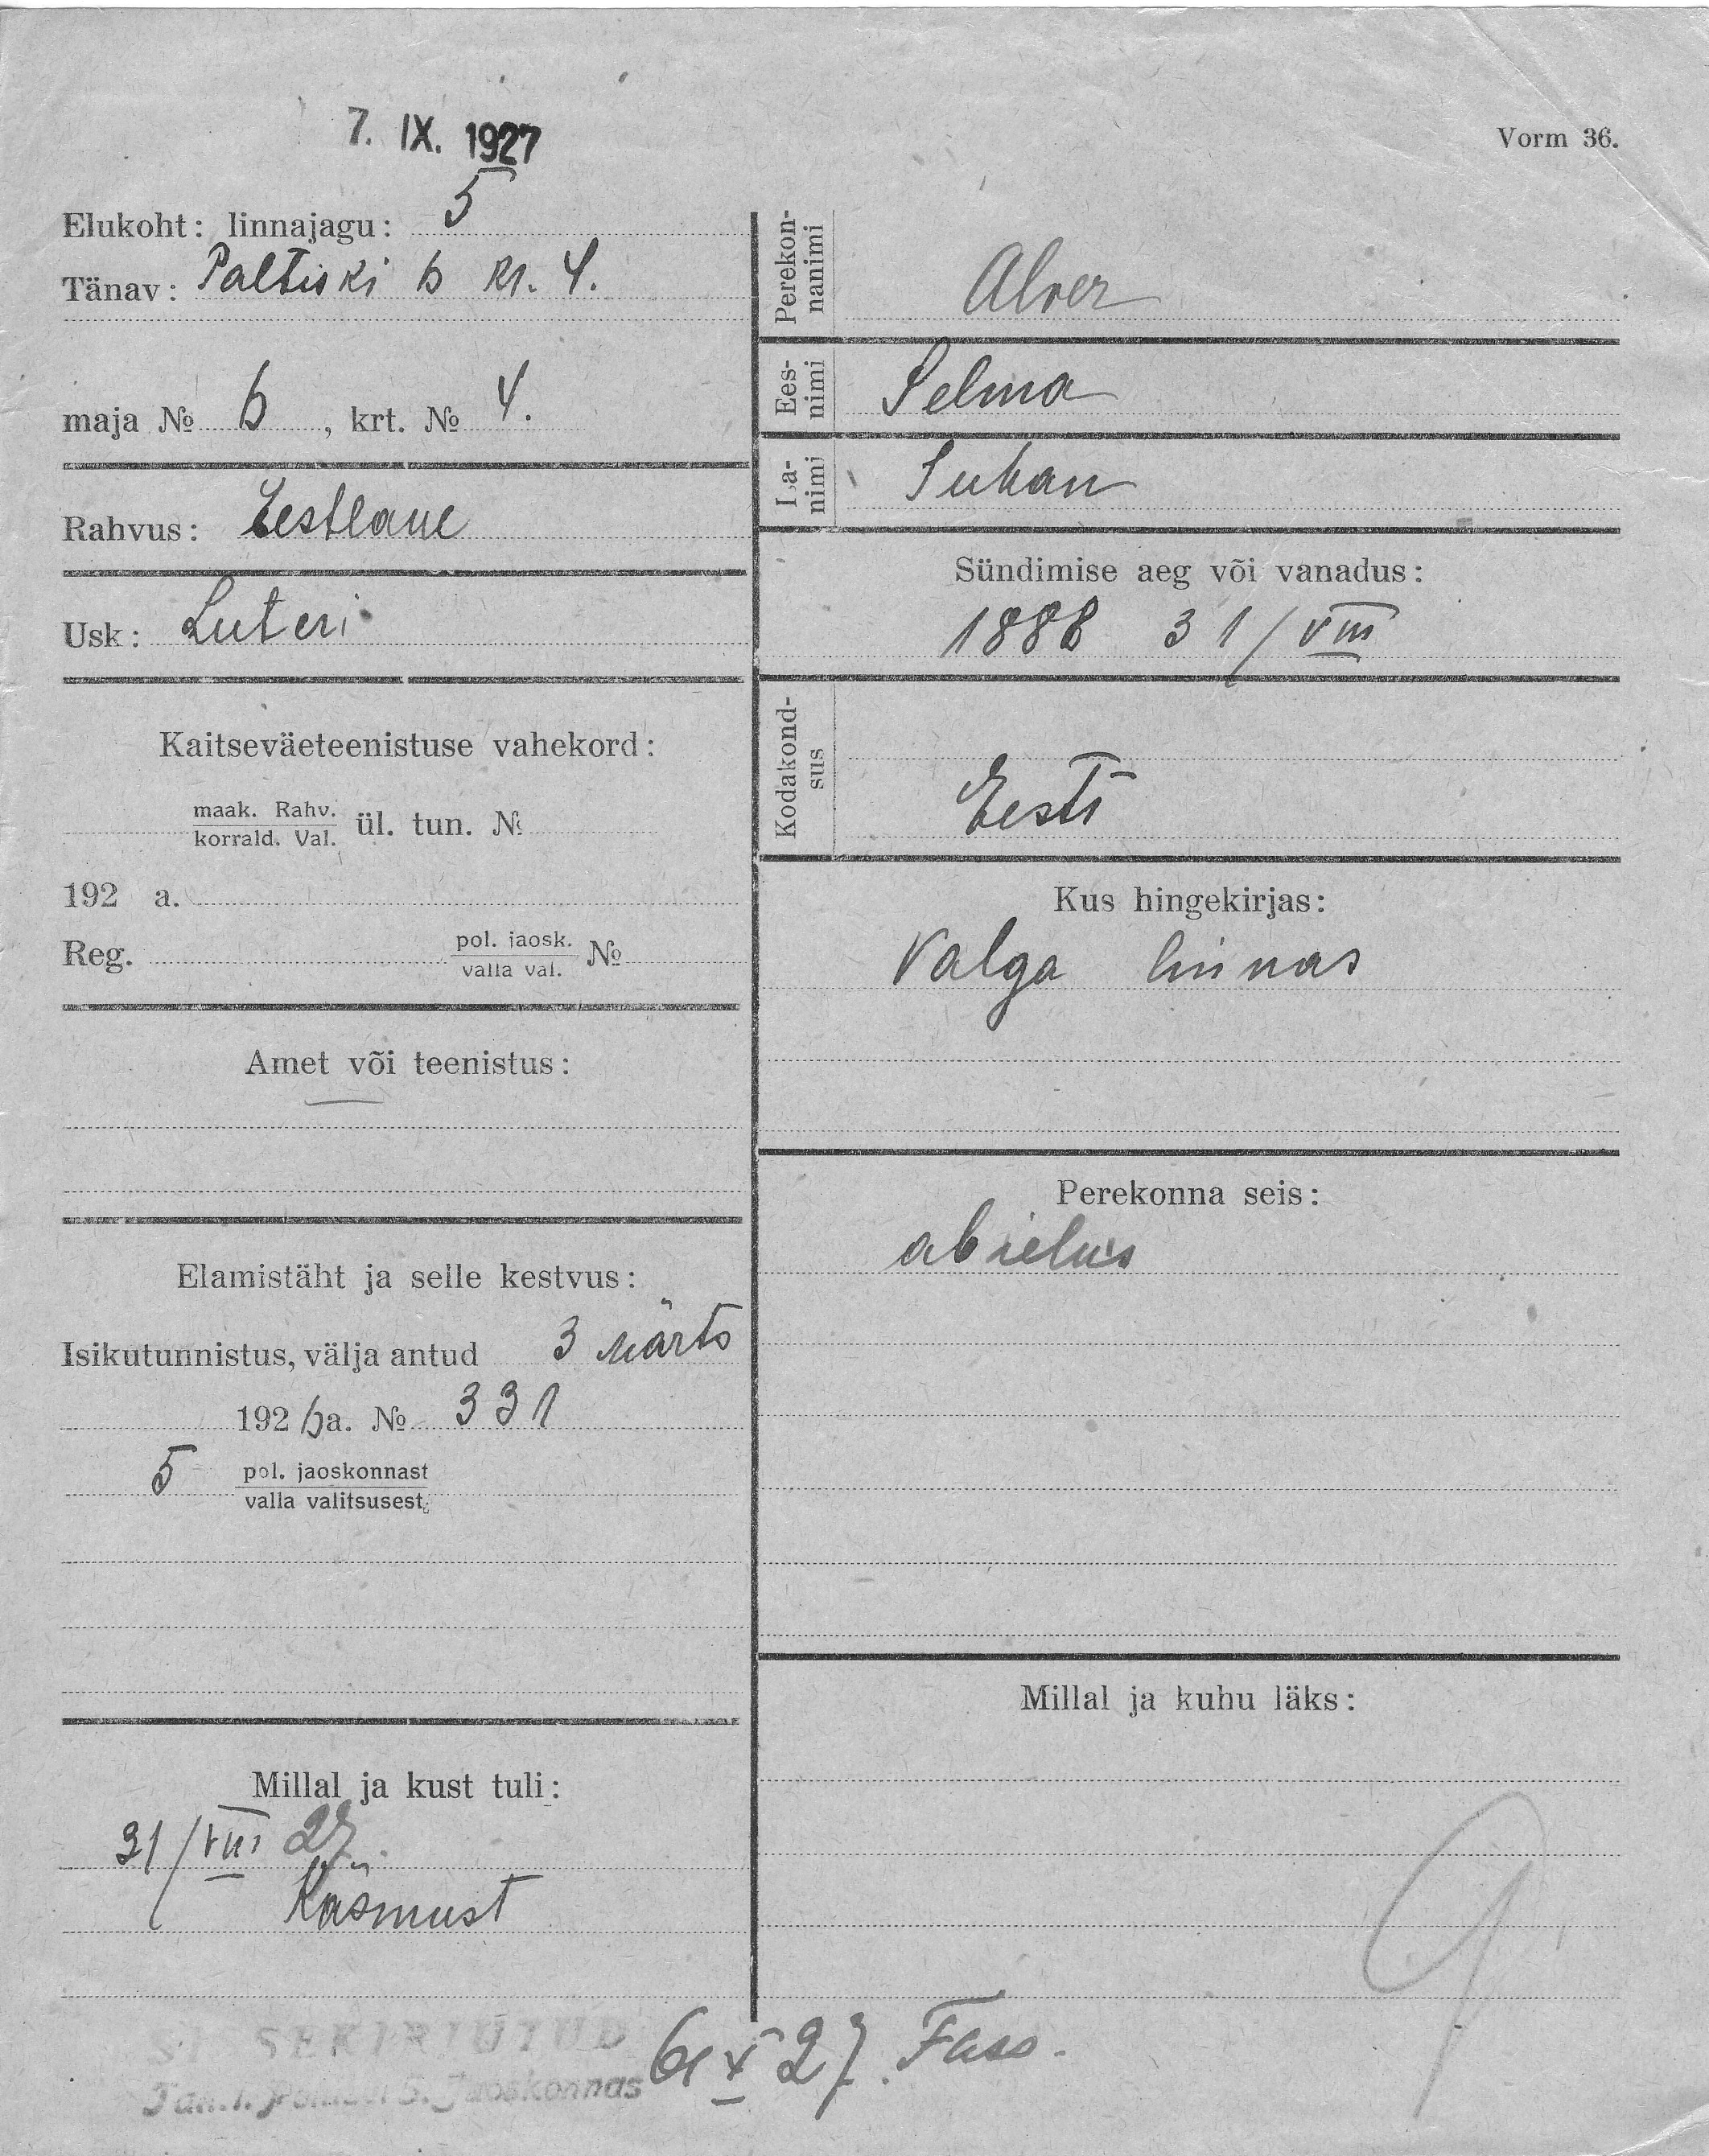 7. IX. 1927
Vorm 36.
Elukoht: linnajagu: 5
Tänav: Paltiski 6 kr. 4.
maja № 6, krt. № 4.
Rahvus: Eestlane
Usk: Luteri
Kaitseväeteenistuse vahekord:
maak. Rahv.
korrald. Val. ül. tun. №
192 a.
Reg. pol. jaosk. №
valla val.
Amet või teenistus:
—
Elamistäht ja selle kestvus:
Isikutunnistus, välja antud 3 Märts
192 6 a. № 331
5 pol. jaoskonnast
valla valitsusest.
Millal ja kust tuli:
31/VIII 27.
Käsmust
Perekon-
nanimi Alver
Ees-
nimi Selma
Isa-
nimi Juhan
Sündimise aeg või vanadus:
1888 31/VIII
Kodakond-
sus Eesti
Kus hingekirjas:
Valga linnas
Perekonna seis:
abielus
Millal ja kuhu läks:
SISSEKIRJUTUD
5. Jaoskonnas
27. Fass.